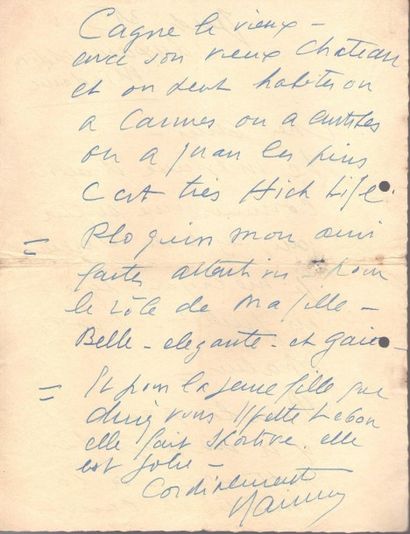 Cagne le vieux -
avec son vieux Chateau
et on peut habiter ou
a Cannes ou a antibes
ou a Juan les pins
C'est très Hich Life.
= Ploquin mon ami
faites attention pour
le rôle de Ma fille -
Belle - elegante - et gaie -
= Et pour la jeune fille que
diriez vous Yvette Lebon
elle fait sportive. elle
est jolie -
Cordialement